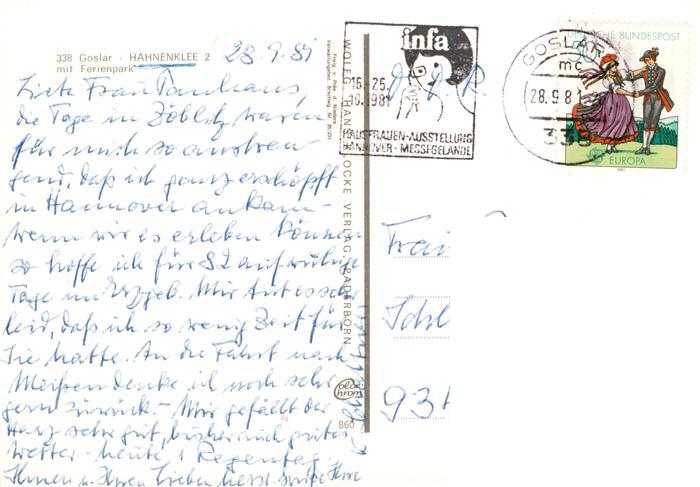 338 Goslar · HAHNENKLEE 2
mit Ferienpark
28.9.81
Liebe Frau Tauhaus,
die Tage in Zöblitz waren
für mich so anstren-
gend, daß ich ganz erschöpft
in Hannover ankam -
wenn wir es erleben können
so hoffe ich für 82 auf ruhige
Tage im Erzgeb. Mir tut es sehr
leid, daß ich so wenig Zeit für
Sie hatte. An die Fahrt nach
Meißen denke ich noch sehr
gern zurück. - Mir gefällt der
Harz sehr gut, bisher auch gutes
Wetter - heute 1 Regentag.
Ihnen u. Ihren Lieben herzl. Grüße Ihre
WOLFG. HANS KLOCKE VERLAG PADERBORN
plan chrom
860
infa
16.-25.
10.1981
HAUSFRAUEN-AUSSTELLUNG
HANNOVER - MESSEGELÄNDE
D.D.R.
GOSLAR
mc
28.9.8
338
DEUTSCHE BUNDESPOST
50
EUROPA
1981
Frau
Schl
93